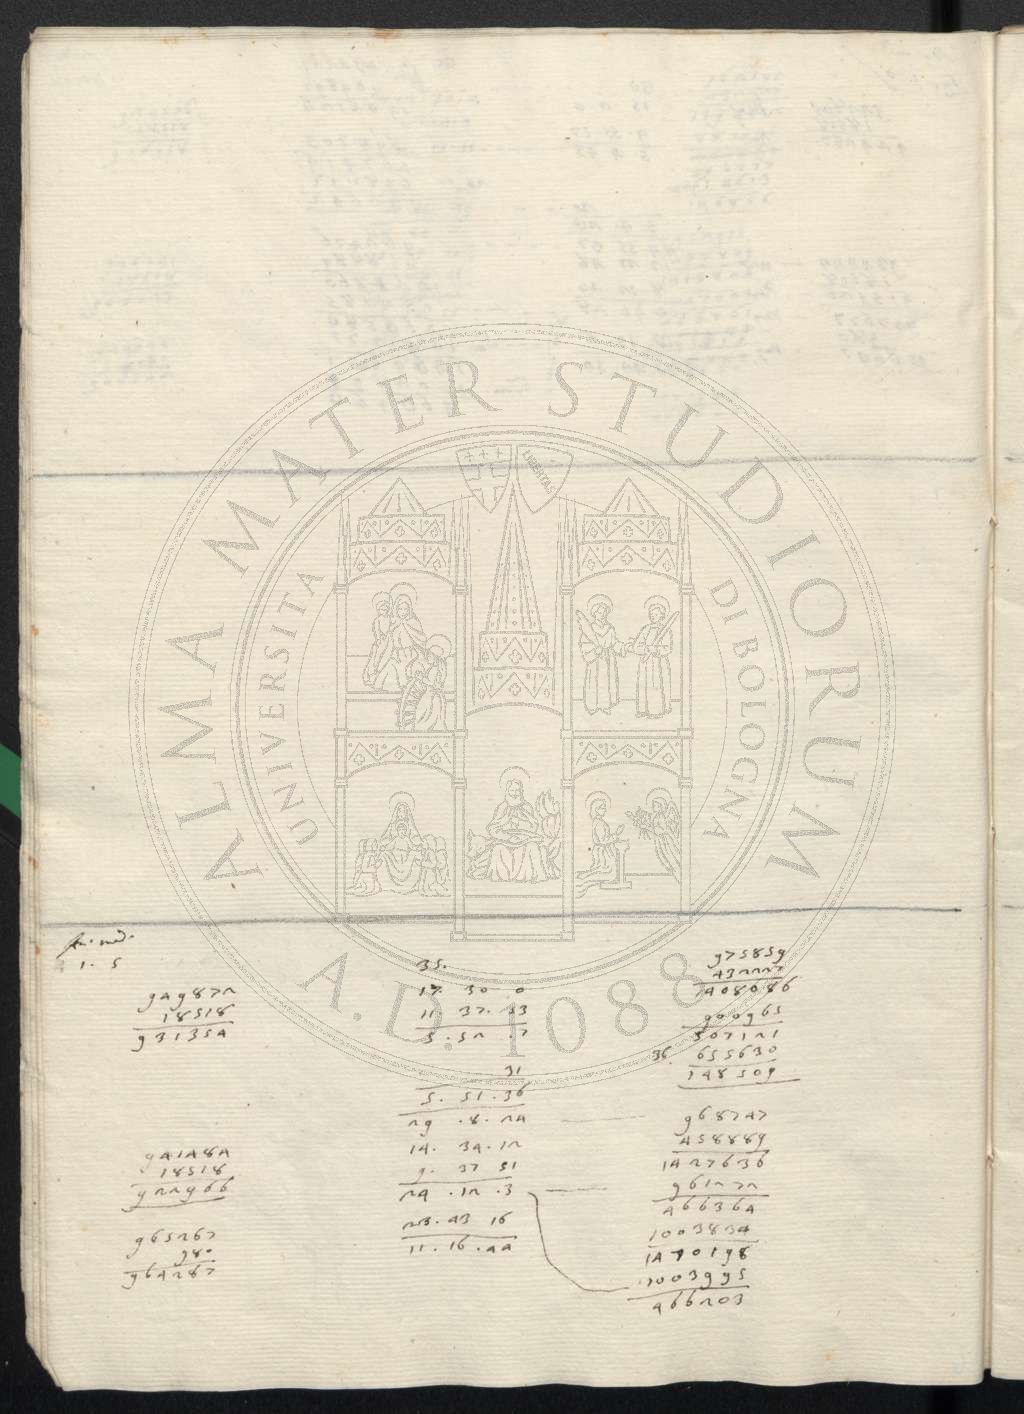 ALMA MATER STUDIORUM
A.D. 1088
UNIVERSITA DI BOLOGNA
LIBERTAS
1. 5
949872
18518
931354
941484
18518
922966
965267
980
964287
35.
17. 30 0
11. 37. 53
5. 52 . 7
31
5. 51. 36
29 . 8. 24
14. 34. 12
9. 37 51
24 . 12 . 3
23. 43 16
11. 16. 44
975859
432227
1408086
900965
507121
36. 655630
148509
968747
458889
1427636
961272
466364
1003834
1470198
1003995
466203